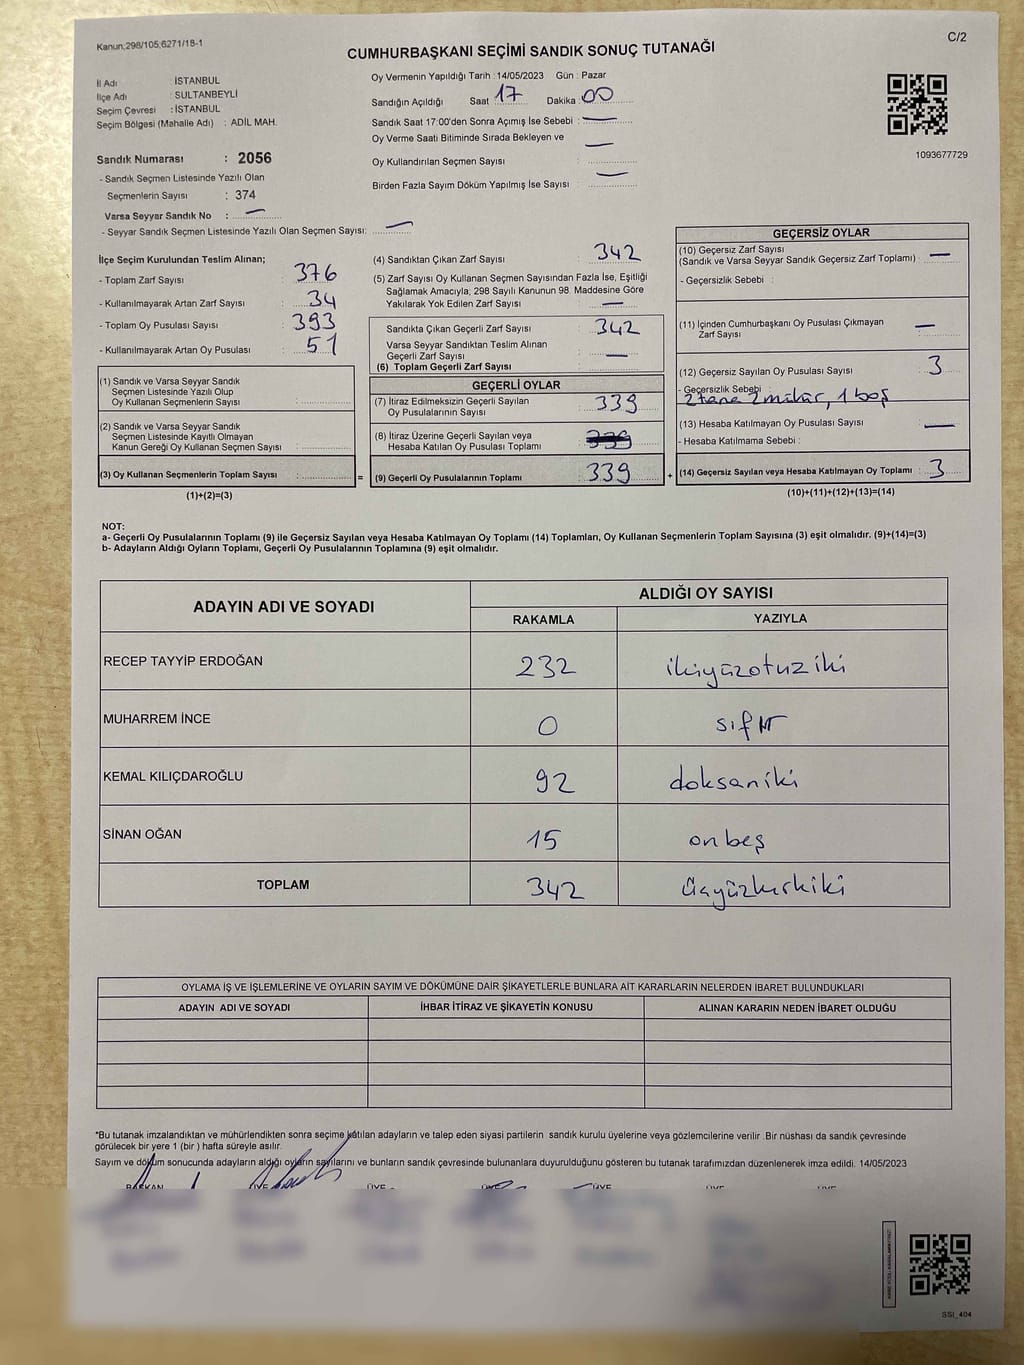 Kanun;298/105;6271/18-1
C/2
CUMHURBAŞKANI SEÇİMİ SANDIK SONUÇ TUTANAĞI
İl Adı : İSTANBUL
İlçe Adı : SULTANBEYLİ
Seçim Çevresi : İSTANBUL
Seçim Bölgesi (Mahalle Adı) : ADİL MAH.
Oy Vermenin Yapıldığı Tarih : 14/05/2023 Gün : Pazar
Sandığın Açıldığı Saat 17 Dakika : 00
Sandık Saat 17:00'den Sonra Açımış İse Sebebi : —
Oy Verme Saati Bitiminde Sırada Bekleyen ve
Oy Kullandırılan Seçmen Sayısı : —
Birden Fazla Sayım Döküm Yapılmış İse Sayısı : —
1093677729
Sandık Numarası : 2056
- Sandık Seçmen Listesinde Yazılı Olan
Seçmenlerin Sayısı : 374
Varsa Seyyar Sandık No : —
- Seyyar Sandık Seçmen Listesinde Yazılı Olan Seçmen Sayısı: —
İlçe Seçim Kurulundan Teslim Alınan;
- Toplam Zarf Sayısı : 376
- Kullanılmayarak Artan Zarf Sayısı : 34
- Toplam Oy Pusulası Sayısı : 393
- Kullanılmayarak Artan Oy Pusulası : 51
(1) Sandık ve Varsa Seyyar Sandık
Seçmen Listesinde Yazılı Olup
Oy Kullanan Seçmenlerin Sayısı :
(2) Sandık ve Varsa Seyyar Sandık
Seçmen Listesinde Kayıtlı Olmayan
Kanun Gereği Oy Kullanan Seçmen Sayısı :
(3) Oy Kullanan Seçmenlerin Toplam Sayısı : =
(1)+(2)=(3)
(4) Sandıktan Çıkan Zarf Sayısı : 342
(5) Zarf Sayısı Oy Kullanan Seçmen Sayısından Fazla İse, Eşitliği
Sağlamak Amacıyla; 298 Sayılı Kanunun 98. Maddesine Göre
Yakılarak Yok Edilen Zarf Sayısı : —
Sandıkta Çıkan Geçerli Zarf Sayısı : 342
Varsa Seyyar Sandıktan Teslim Alınan
Geçerli Zarf Sayısı : —
(6) Toplam Geçerli Zarf Sayısı :
GEÇERLİ OYLAR
(7) İtiraz Edilmeksizin Geçerli Sayılan
Oy Pusulalarının Sayısı : 339
(8) İtiraz Üzerine Geçerli Sayılan veya
Hesaba Katılan Oy Pusulası Toplamı : 339
(9) Geçerli Oy Pusulalarının Toplamı : 339 +
GEÇERSİZ OYLAR
(10) Geçersiz Zarf Sayısı
(Sandık ve Varsa Seyyar Sandık Geçersiz Zarf Toplamı) : —
- Geçersizlik Sebebi :
(11) İçinden Cumhurbaşkanı Oy Pusulası Çıkmayan
Zarf Sayısı : —
(12) Geçersiz Sayılan Oy Pusulası Sayısı : 3
- Geçersizlik Sebebi :
2 tane 2 mühür, 1 boş
(13) Hesaba Katılmayan Oy Pusulası Sayısı : —
- Hesaba Katılmama Sebebi :
(14) Geçersiz Sayılan veya Hesaba Katılmayan Oy Toplamı : 3
(10)+(11)+(12)+(13)=(14)
NOT:
a- Geçerli Oy Pusulalarının Toplamı (9) ile Geçersiz Sayılan veya Hesaba Katılmayan Oy Toplamı (14) Toplamları, Oy Kullanan Seçmenlerin Toplam Sayısına (3) eşit olmalıdır. (9)+(14)=(3)
b- Adayların Aldığı Oyların Toplamı, Geçerli Oy Pusulalarının Toplamına (9) eşit olmalıdır.
ADAYIN ADI VE SOYADI
ALDIĞI OY SAYISI
RAKAMLA YAZIYLA
RECEP TAYYİP ERDOĞAN 232 ikiyüzotuz iki
MUHARREM İNCE 0 sıfır
KEMAL KILIÇDAROĞLU 92 doksaniki
SİNAN OĞAN 15 onbeş
TOPLAM 342 üçyüzkırkiki
OYLAMA İŞ VE İŞLEMLERİNE VE OYLARIN SAYIM VE DÖKÜMÜNE DAİR ŞİKAYETLERLE BUNLARA AİT KARARLARIN NELERDEN İBARET BULUNDUKLARI
ADAYIN ADI VE SOYADI İHBAR İTİRAZ VE ŞİKAYETİN KONUSU ALINAN KARARIN NEDEN İBARET OLDUĞU
*Bu tutanak imzalandıktan ve mühürlendikten sonra seçime katılan adayların ve talep eden siyasi partilerin sandık kurulu üyelerine veya gözlemcilerine verilir .Bir nüshası da sandık çevresinde
görülecek bir yere 1 (bir ) hafta süreyle asılır.
Sayım ve döküm sonucunda adayların aldığı oyların sayılarını ve bunların sandık çevresinde bulunanlara duyurulduğunu gösteren bu tutanak tarafımızdan düzenlenerek imza edildi. 14/05/2023
BAŞKAN ÜYE ÜYE ÜYE ÜYE ÜYE ÜYE
SSI_404